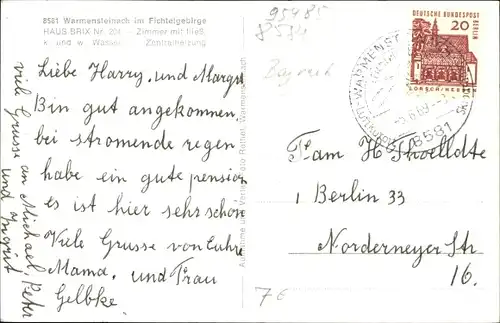 8581 Warmensteinach im Fichtelgebirge
HAUS BRIX Nr. 204 - Zimmer mit fließ.
k. und w. Wasser - Zentralheizung
95485
8584
Liebe Harry, und Margit
Bin gut angekommen,
bei stromende regen
habe ein gute pension
es ist hier sehr schön
Viele Grusse von Euhre
Mama. und Frau
Gelbke.
viele Grusse an Michael, Peter
und Ingrit!
DEUTSCHE BUNDESPOST
BERLIN
20
LORSCH/HESSEN
8581
Fam H. Thoelldte
1 Berlin 33
Norderneyer Str
16.
7 6